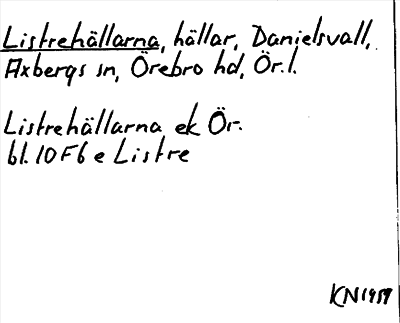 Listrehällarna, hällar, Danielsvall,
Axbergs sn, Örebro hd, Ör.l.
Listrehällarna ek Ör.
bl. 10F6 e Listre
KN1959